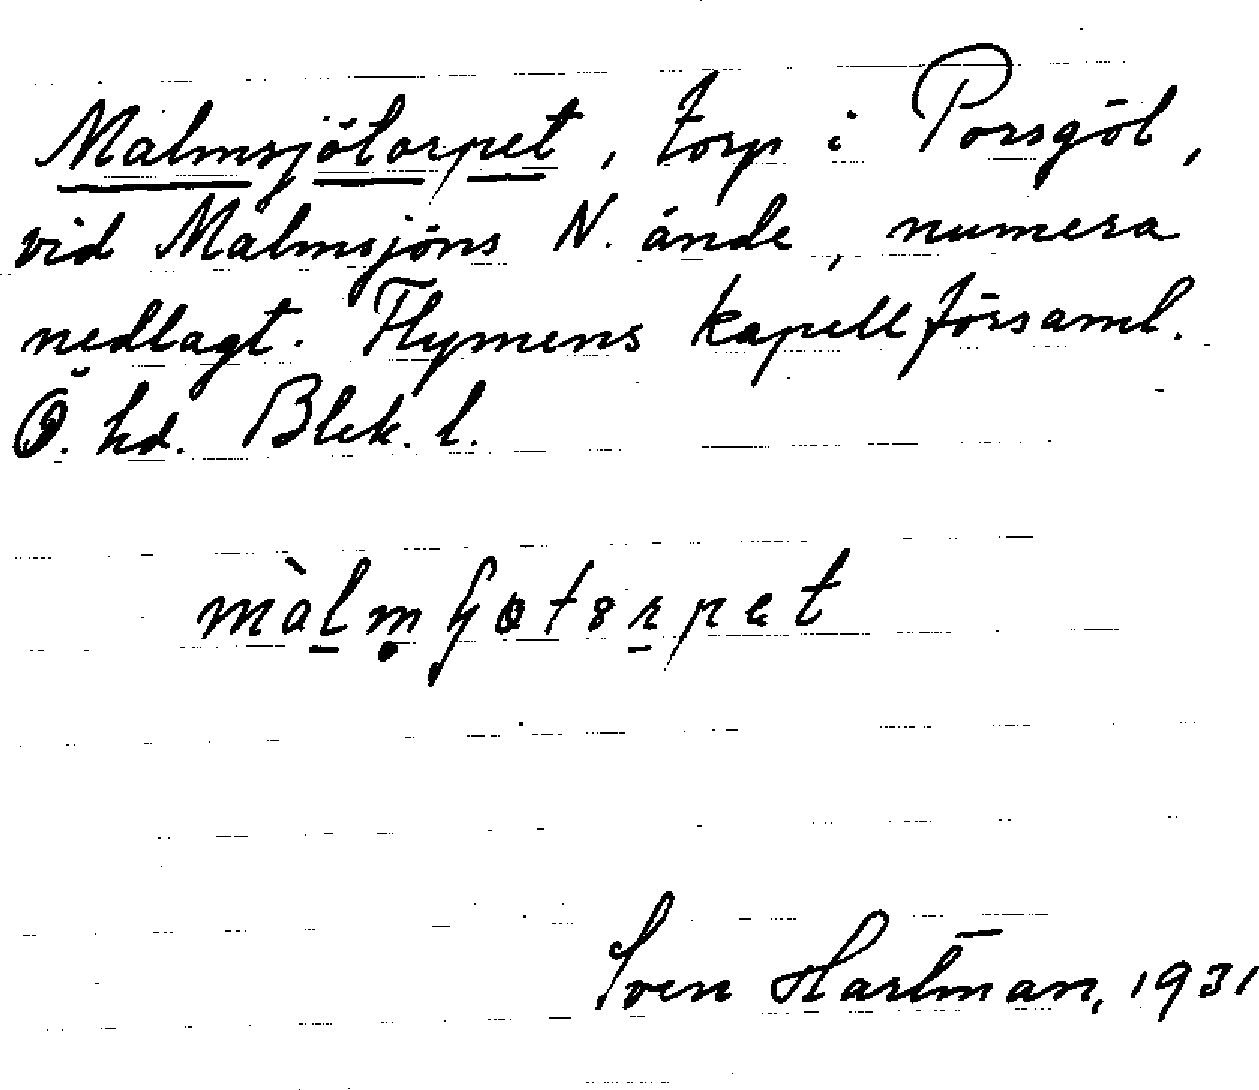 Malmsjötorpet, torp i Porsgöl,
vid Malmsjöns N. ände, numera
nedlagt. Flymens kapellförsaml.
Ö. hd. Blek. l.
Sven Hartman, 1931